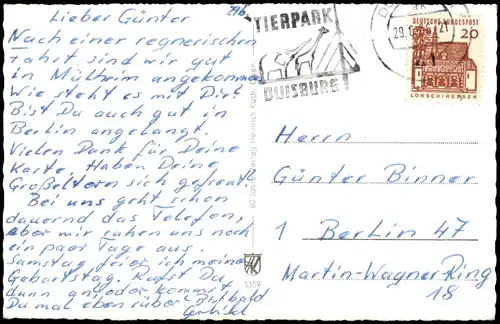 Lieber Günter
Nach einer regnerischen
Fahrt sind wir gut
in Mülheim angekomm
Wie steht es mit Dir?
Bist Du auch gut in
Berlin angelangt.
Vielen Dank für Deine
Karte. Haben Deine
Großeltern sich gefreut?
Bei uns geht schon
dauernd das Telefon,
aber wir ruhen uns noch
ein paar Tage aus.
Samstag feier ich meine
Geburtstag. Rufst Du
dann an oder kommst
Du mal eben rüber? Bis bald
TIERPARK
DUISBURG
29.
21
DEUTSCHE BUNDESPOST
20
LORSCH/HESSEN
Herrn
Günter Binner
1 Berlin 47
Martin-Wagner-Ring
18
Heinrich Koch
5359